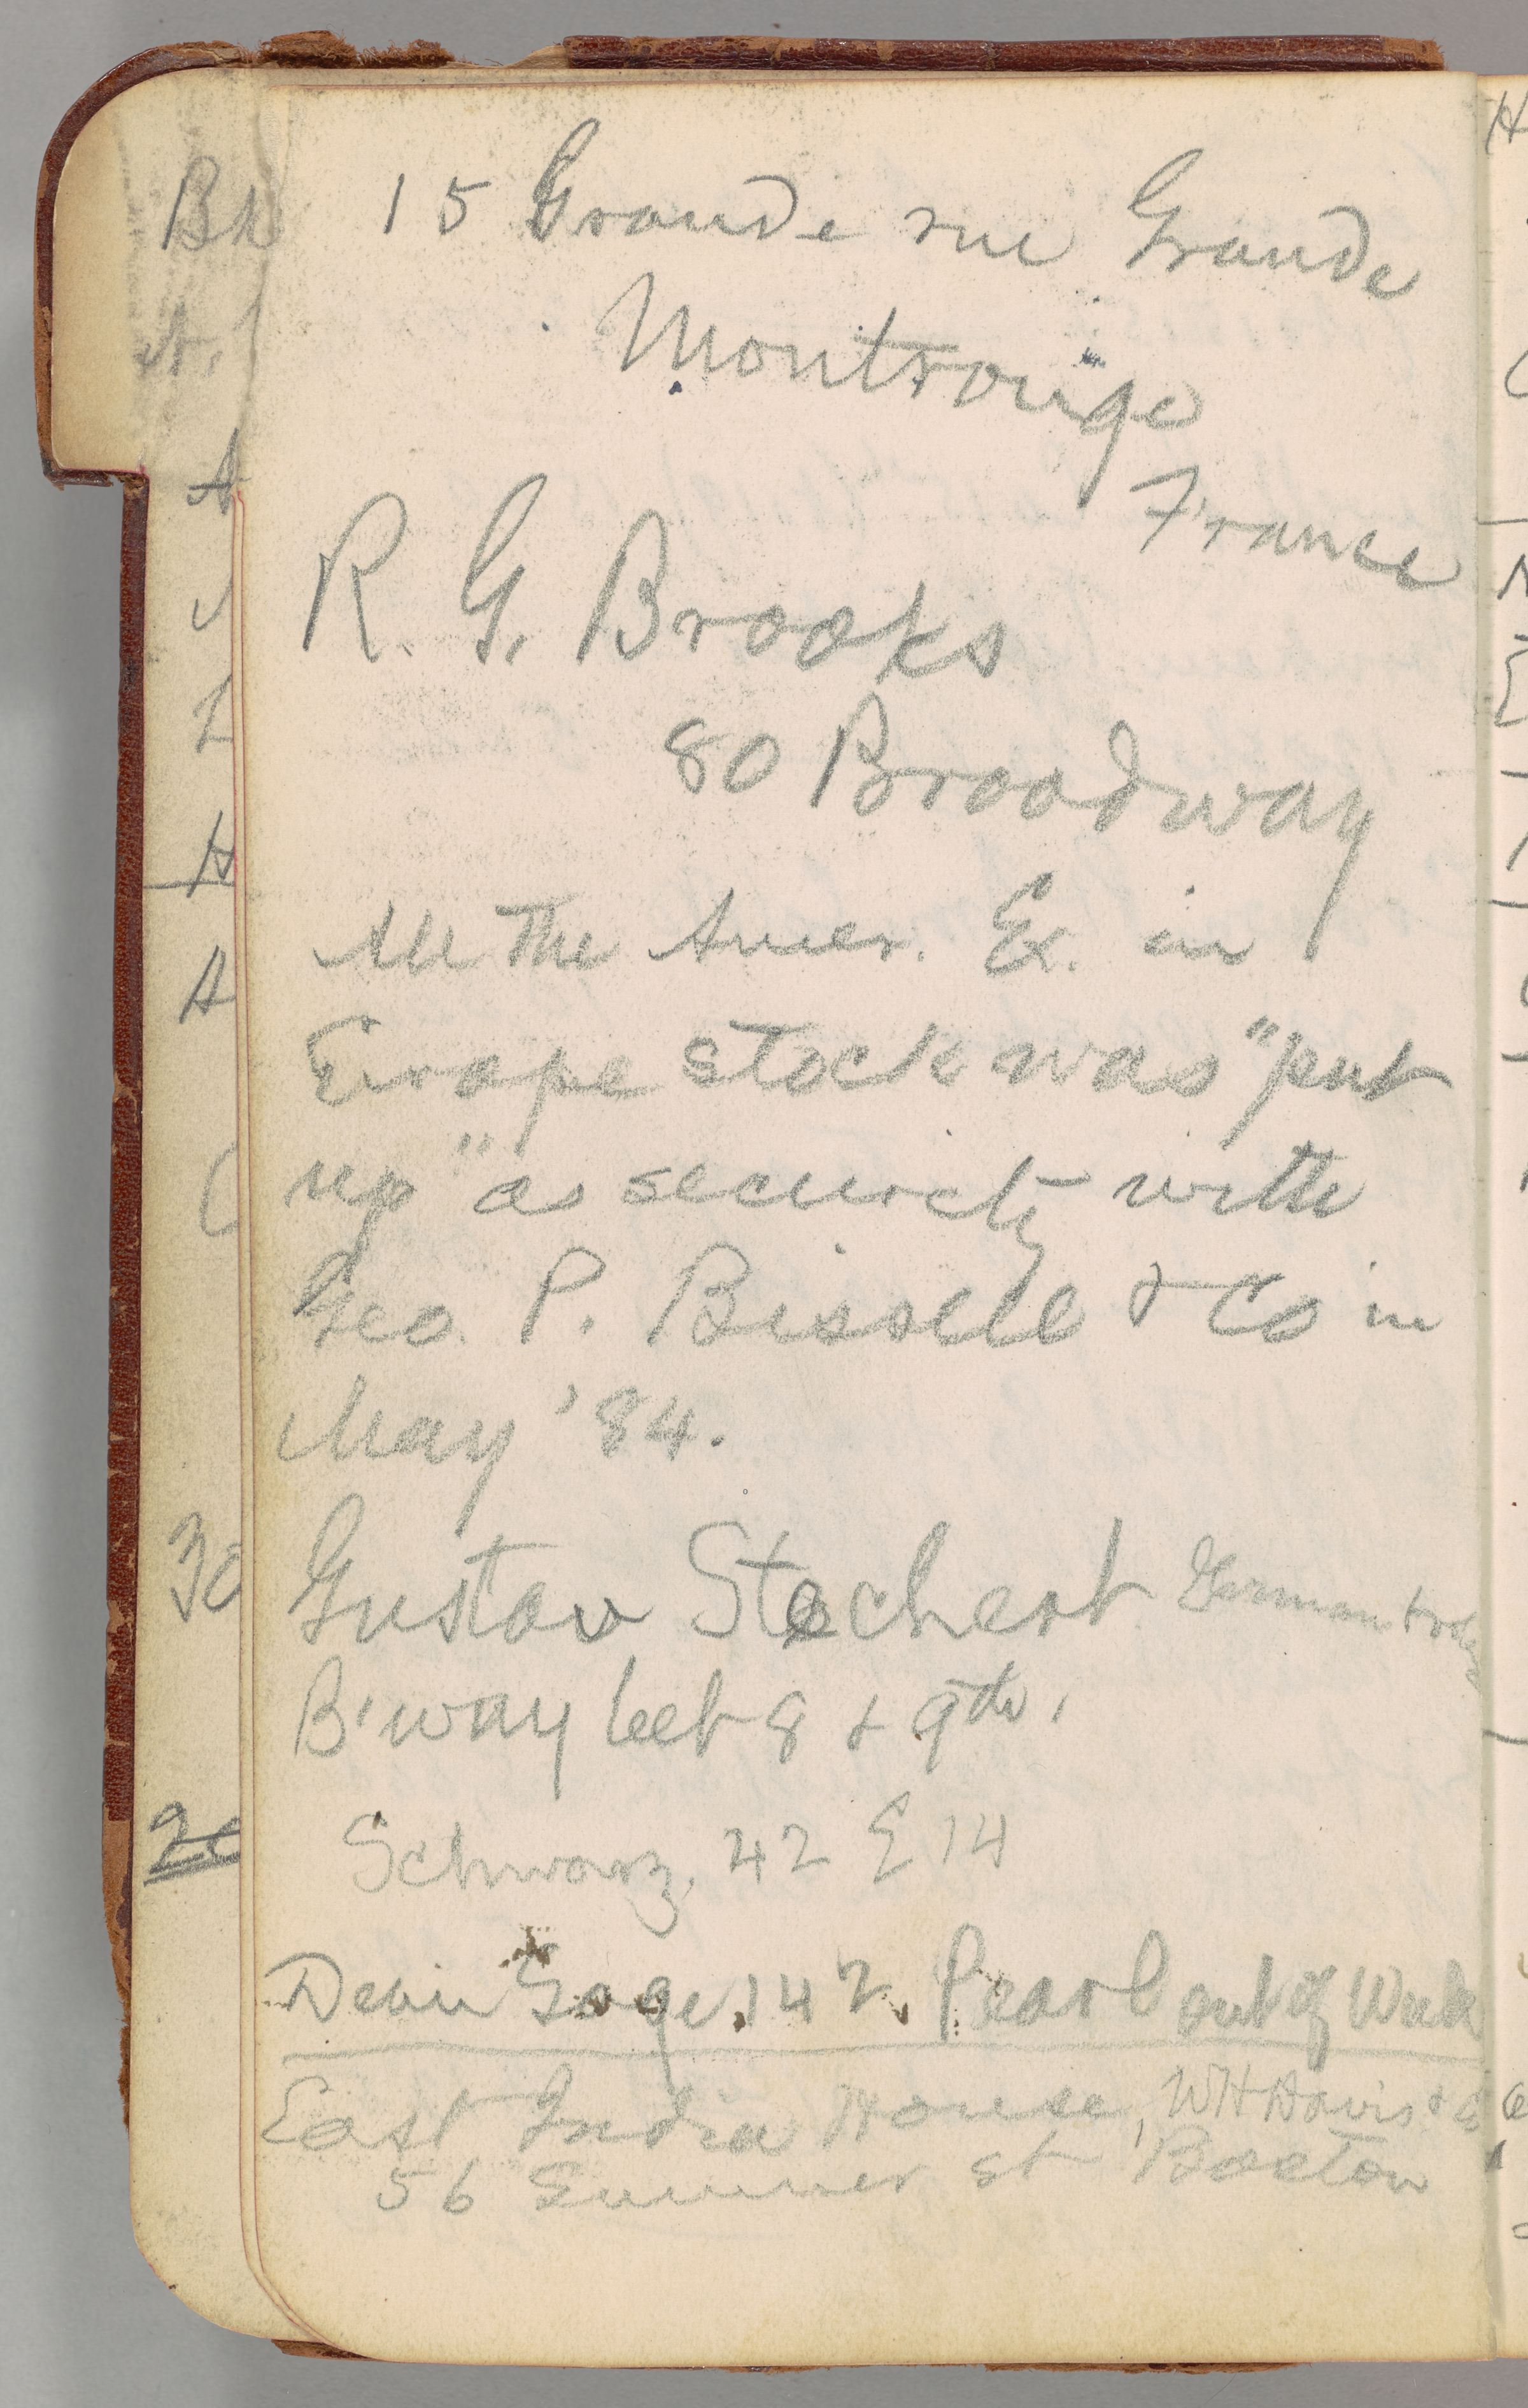 15 Grande rue Grande
Montrouge
France
R. G. Brooks
80 Broadway
All the Amer. Ex. in
Europe stock was "put
up" as security with
Geo. P. Bissell & Co in
May '84.
Gustav Stechert German
B'way bet 8 & 9th.
Schwarz, 42 E 14
Gage, 142 Pearl out of Week
East India House, WH Davis &
56 Summer st Boston